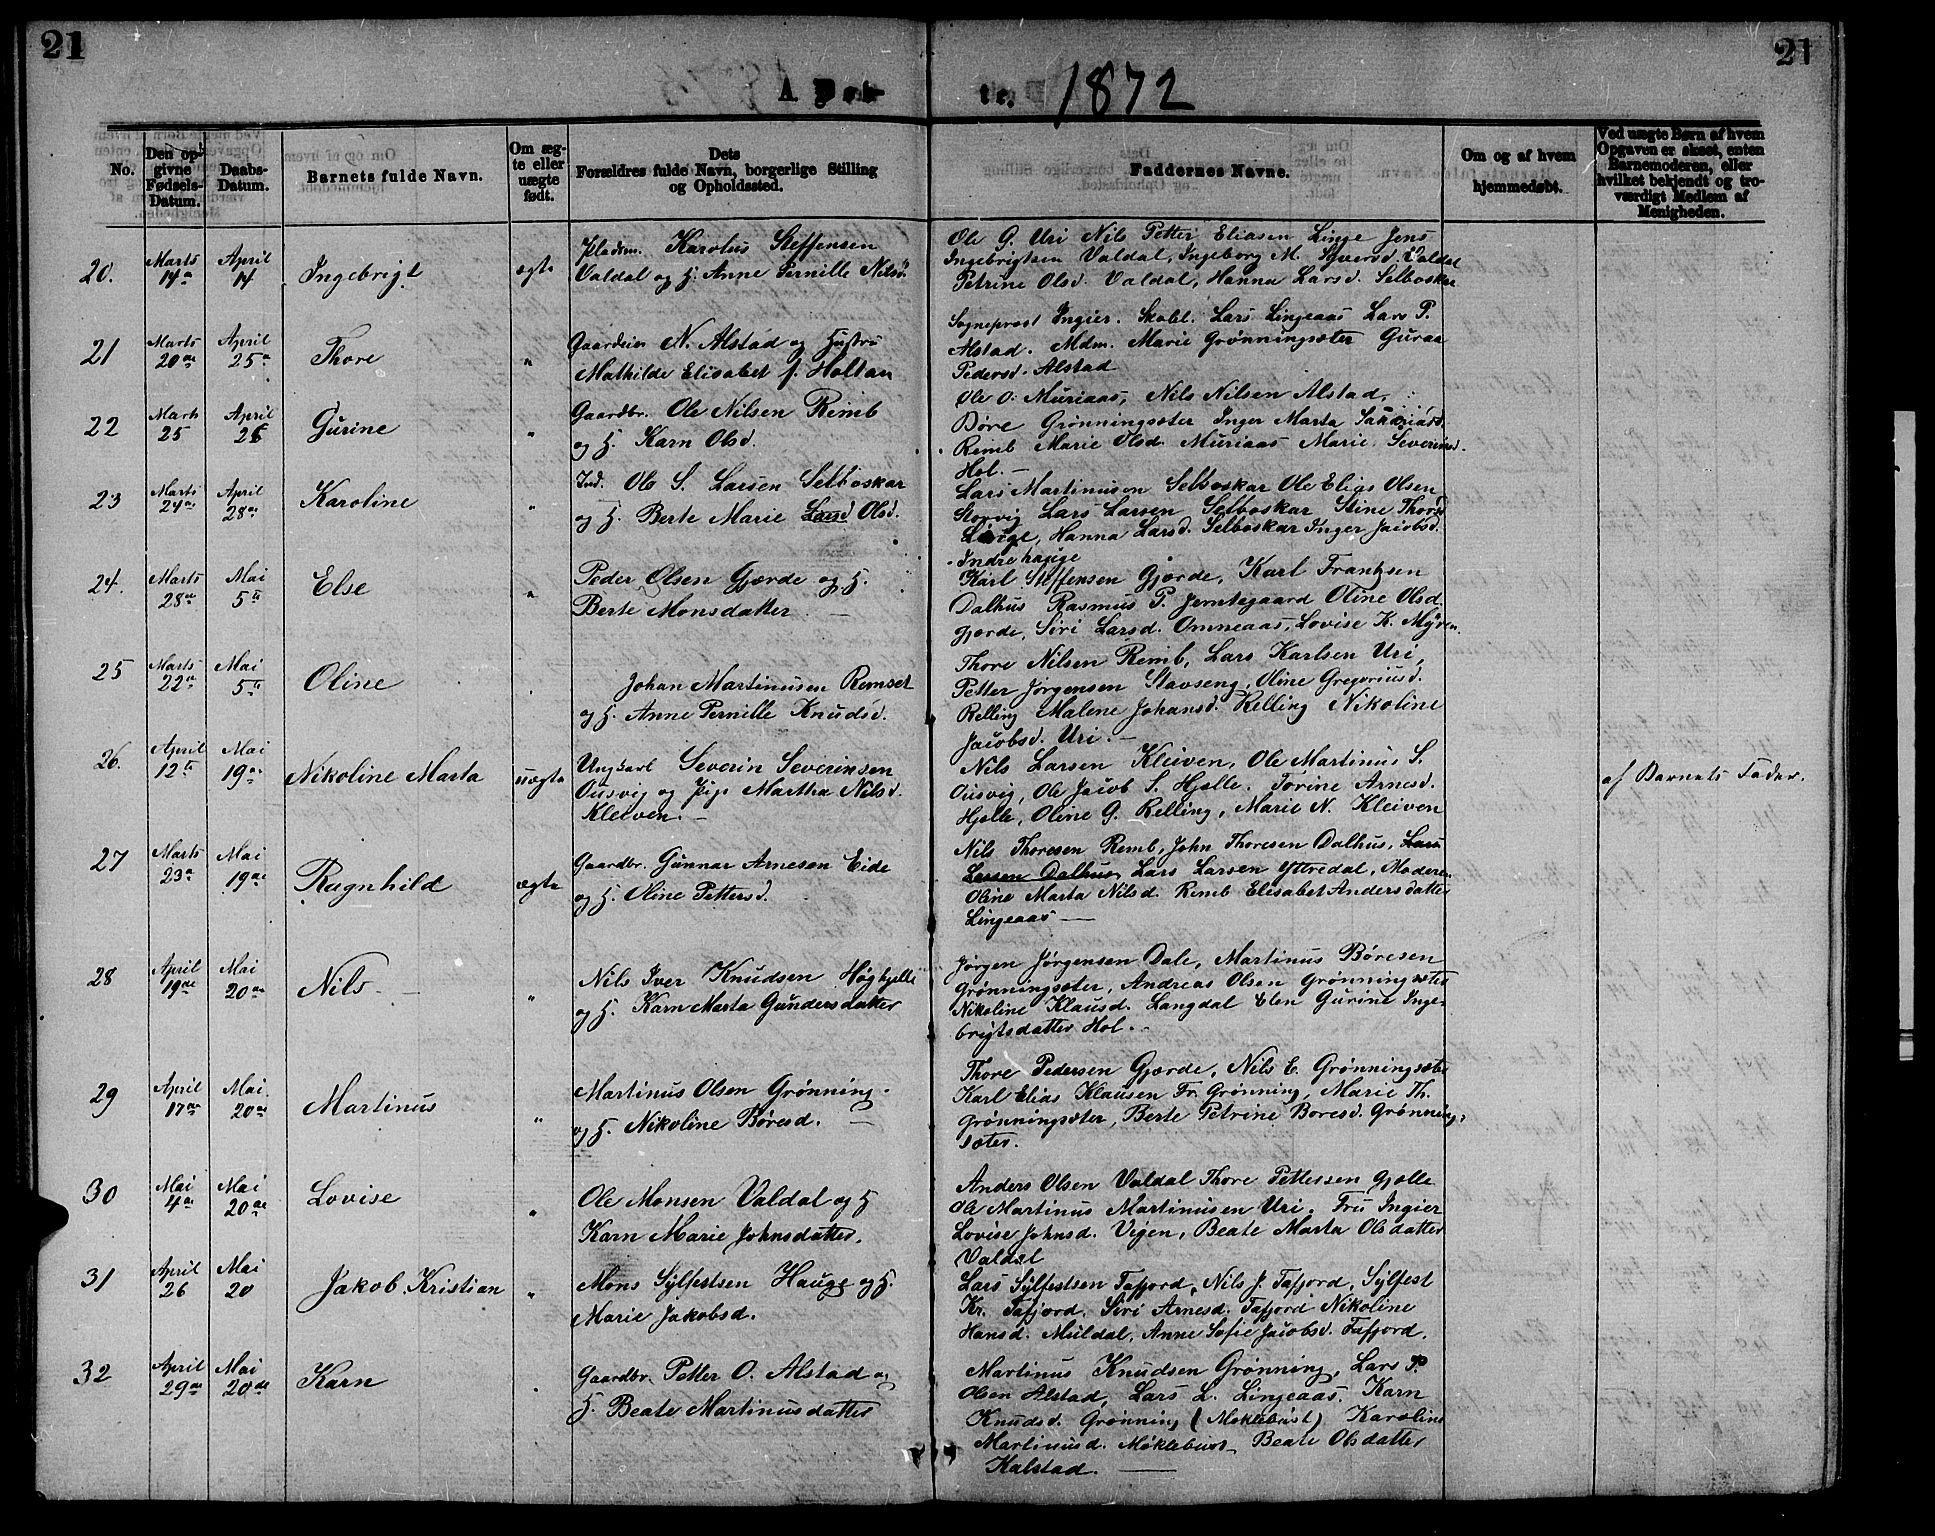 21
21
A. Døb-
te.
1872
No.
Den op-
givne
Fødsels-
Datum.
Daabs-
Datum.
Barnets fulde Navn.
Om æg-
te eller
uægte
født.
Dets
Forældres fulde Navn, borgerlige Stilling
og Opholdssted.
Faddernes Navne.
Om og af hvem
hjemmedøbt.
Ved uægte Børn af hvem
Opgaven er skeet, enten
Barnemoderen, eller
hvilket bekjendt og tro-
værdigt Medlem af
Menigheden.
20.
Marts
14de
April
14
Ingebrigt
ægte
Pladsm. Karolus Steffensen
Valdal og H. Anne Pernille Nilsd.
Ole G. Uri Nils Petter Eliasen Linge Jens
Ingebrigtsen Valdal, Ingeborg M. Syversd. Valdal
Petrine Olsd. Valdal, Hanna Larsd. Selboskar
21
Marts
20de
April
25de
Thore
"
N. Alstad og Hustru
Mathilde Elisabet f. Holtan
Sogneprest Ingier. Skolel. Lars Lingeaas Lars P.
Alstad. Mdm. Marie Grønningsæter Guraa
Pedersd. Alstad
22
Marts
25
April
Gurine
"
Gaardbr. Ole Nilsen Remb
og H. Karn Olsd.
Ole O. Muriaas, Nils Nilsen Alstad,
Børe Grønningsæter Inger Marta Sakariasd.
Remb Marie Olsd. Muriaas Marie Severinsd.
Hol.
23
Marts
24de
April
28de
Karoline
"
Ind. Ole S. Larsen Selboskar
og H. Berte Marie Larsd Olsd.
Lars Martinusen Selboskar Ole Elias Olsen
Storvig Lars Larsen Selboskar Stine Thoresd
Linge, Hanna Larsd. Selboskar Inger Jacobsd.
Indrehauge
24.
Marts
28de
Mai
5te
Else
"
Peder Olsen Gjørde og H.
Berte Monsdatter
Karl Steffensen Gjørde, Karl Frantzen
Dalhus Rasmus P. Jemtegaard Oline Olsd
Gjørde, Siri Larsd. Omneaas, Lovise K. Myren
25
Marts
22de
Mai
5te
Oline
Johan Martinusen Remset
og H. Anne Pernille Knudsd.
Thore Nilsen Remb, Lars Karlsen Uri,
Petter Jørgensen Stavseng, Oline Gregoriusd.
Relling Malene Johansd. Relling Nikoline
Jacobsd. Uri.
26.
April
12te
Mai
19de
Nikoline Marta
uægte
Ungkarl Severin Severinsen
Ousvig og Pige Martha Nilsd.
Kleiven.
Nils Larsen Kleiven, Ole Martinus S.
Ousvig, Ole Jacob S. Hjelle. Torine Arnesd.
Hjelle, Oline G. Relling, Marie N. Kleiven
af Barnets Fader.
27
Marts
23de
Mai
19de
Ragnhild
ægte
Gaardbr. Gunnar Arnesen Eide
og H. Oline Pettersd.
Nils Thoresen Remb, John Thoresen Dalhus, Lars
Larsen Dalhus, Lars Larsen Yttredal, Moderen
Oline Marta Nilsd. Remb Elisabet Andersdatter
Lingeaas
28
April
19de
Mai
20de
Nils
"
Nils Iver Knudsen Høghjelle
og H. Karn Marta Gundersdatter
Jørgen Jørgensen Dale, Martinus Børesen
Grønningsæter, Andreas Olsen Grønningsæter
Nikoline Klausd. Langdal Elen Gurine Inge-
brigtsdatter Hol.
29
April
17de
Mai
20de
Martinus
"
Martinus Olsen Grønning
og H. Nikoline Børesd.
Thore Pedersen Gjørde, Nils E. Grønningsæter
Karl Elias Klausen Fr. Grønning, Marie Th.
Grønningsæter, Berte Petrine Boresd. Grønning-
sæter.
30
Mai
4de
Mai
20de
Lovise
"
Ole Monsen Valdal og H
Karn Marie Johnsdatter.
Anders Olsen Valdal Thore Pettersen Gjelle
Ole Martinus Martinusen Uri. Fru Ingier
Lovise Johnsd. Vigen, Beate Marta Olsdatter
Valdal
31
April
26
Mai
20
Jakob Kristian
"
Mons Sylfestsen Hauge og H.
Marie Jakobsd.
Lars Sylfestsen Tafjord, Nils J. Tafjord, Sylfest
Kr. Tafjord. Siri Arnesd. Tafjord Nikoline
Hansd. Muldal, Anne Sofie Jacobsd. Tafjord.
32
April
29de
Mai
20de
Karn
Gaardbr. Petter O. Alstad og
H. Beate Martinusdatter
Martinus Knudsen Grønning, Lars P
Olsen Alstad, Lars L. Lingeaas. Karn
Knudsd. Grønning (Møklebust) Karoline
Martinusd. Møklebust Beate Olsdatter
Kalstad.